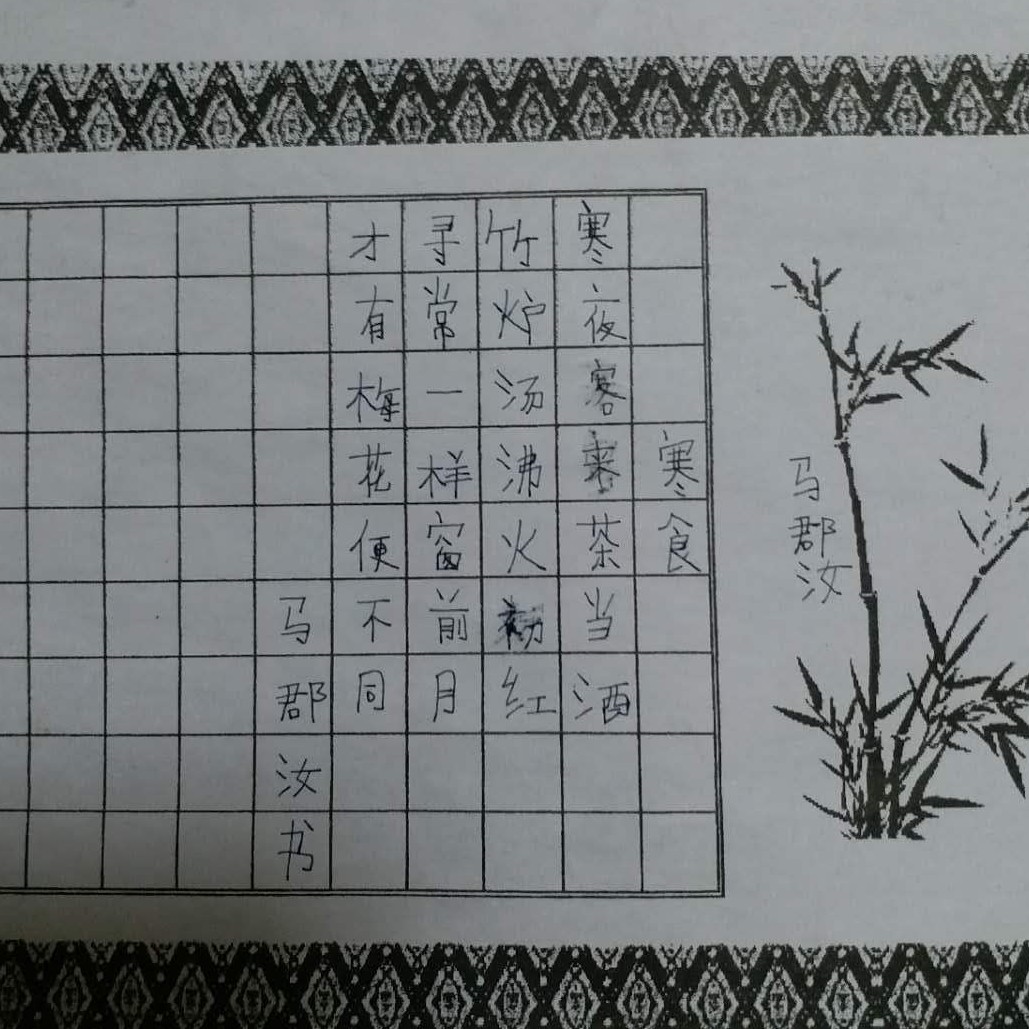 马郡汝
寒食
寒夜客来茶当酒
竹炉汤沸火初红
寻常一样窗前月
才有梅花便不同
马郡汝书